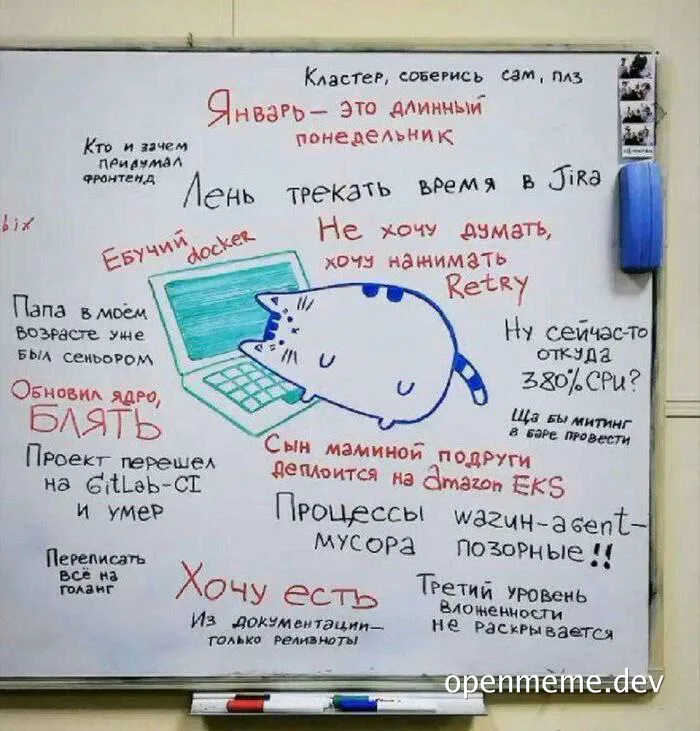 Кластер, соберись сам, плз
Январь – это длинный
понедельник
Кто и зачем
придумал
фронтенд
Лень трекать время в Jira
bix
Ебучий docker
Не хочу думать,
хочу нажимать
Retry
Папа в моём
возрасте уже
был сеньором
Ну сейчас-то
откуда
380% CPU?
Обновил ядро,
БЛЯТЬ
Ща бы митинг
в баре провести
Сын маминой подруги
деплоится на Amazon EKS
Проект перешел
на GitLab-CI
и умер
Процессы wazuh-agent-
мусора позорные!!
Переписать
всё на
голанг
Хочу есть
Из документации–
только релизноты
Третий уровень
вложенности
не раскрывается
openmeme.dev